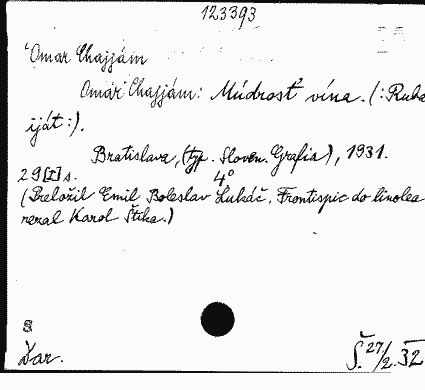 123393
Omar Chajjám
Omar Chajjám: Múdrosť vína. (: Rubá
iját :).
Bratislava, (typ. Sloven. Grafia), 1931.
29 [I] s. 4°
(Preložil Emil Boleslav Lukáč. Frontispic do linolea
rezal Karol Štika.)
Dar.
Š. 27/2. 32